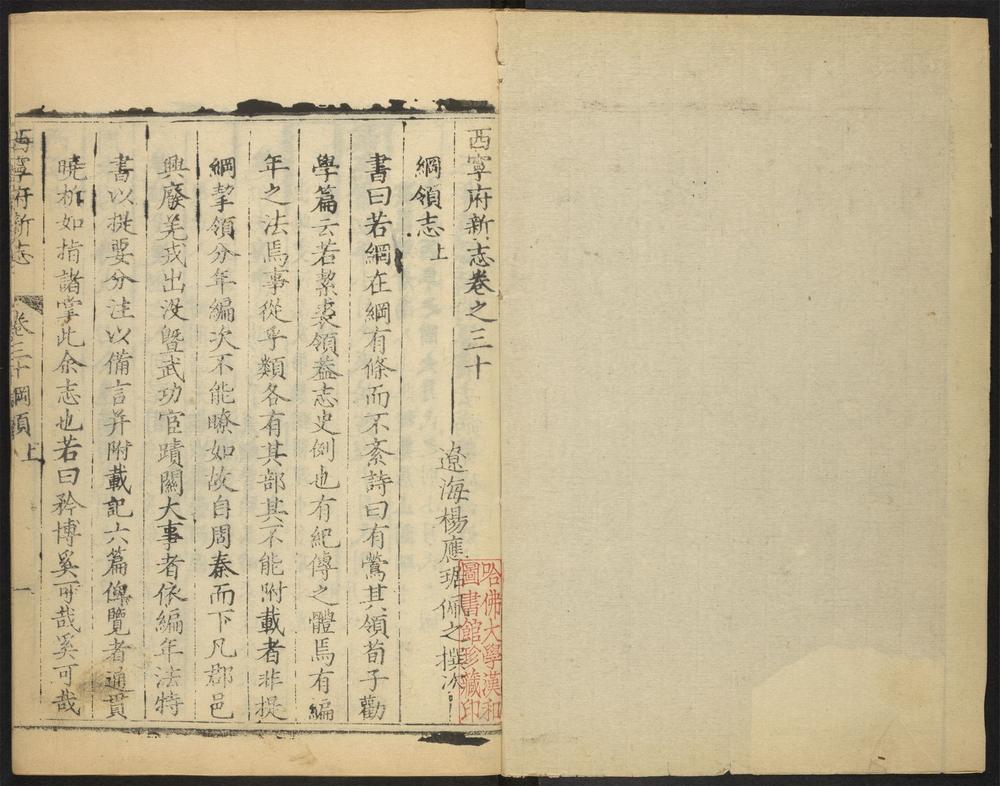 西寧府新志卷之三十
遼海楊應琚佩之撰次
綱領志上
書曰若網在綱有條而不紊詩曰有鶯其領荀子勸
學篇云若絜裘領蓋志史例也有紀傳之體焉有編
年之法焉事從乎類各有其部其不能附載者非提
綱挈領分年編次不能瞭如故自周秦而下凡郡邑
興廢羌戎出沒暨武功宦蹟關大事者依編年法特
書以提要分注以備言并附載記六篇俾覽者通貫
曉析如指諸掌此余志也若曰矜博奚可哉奚可哉
西寧府新志 卷三十綱領上 一
哈佛大學漢和
圖書館珍藏印